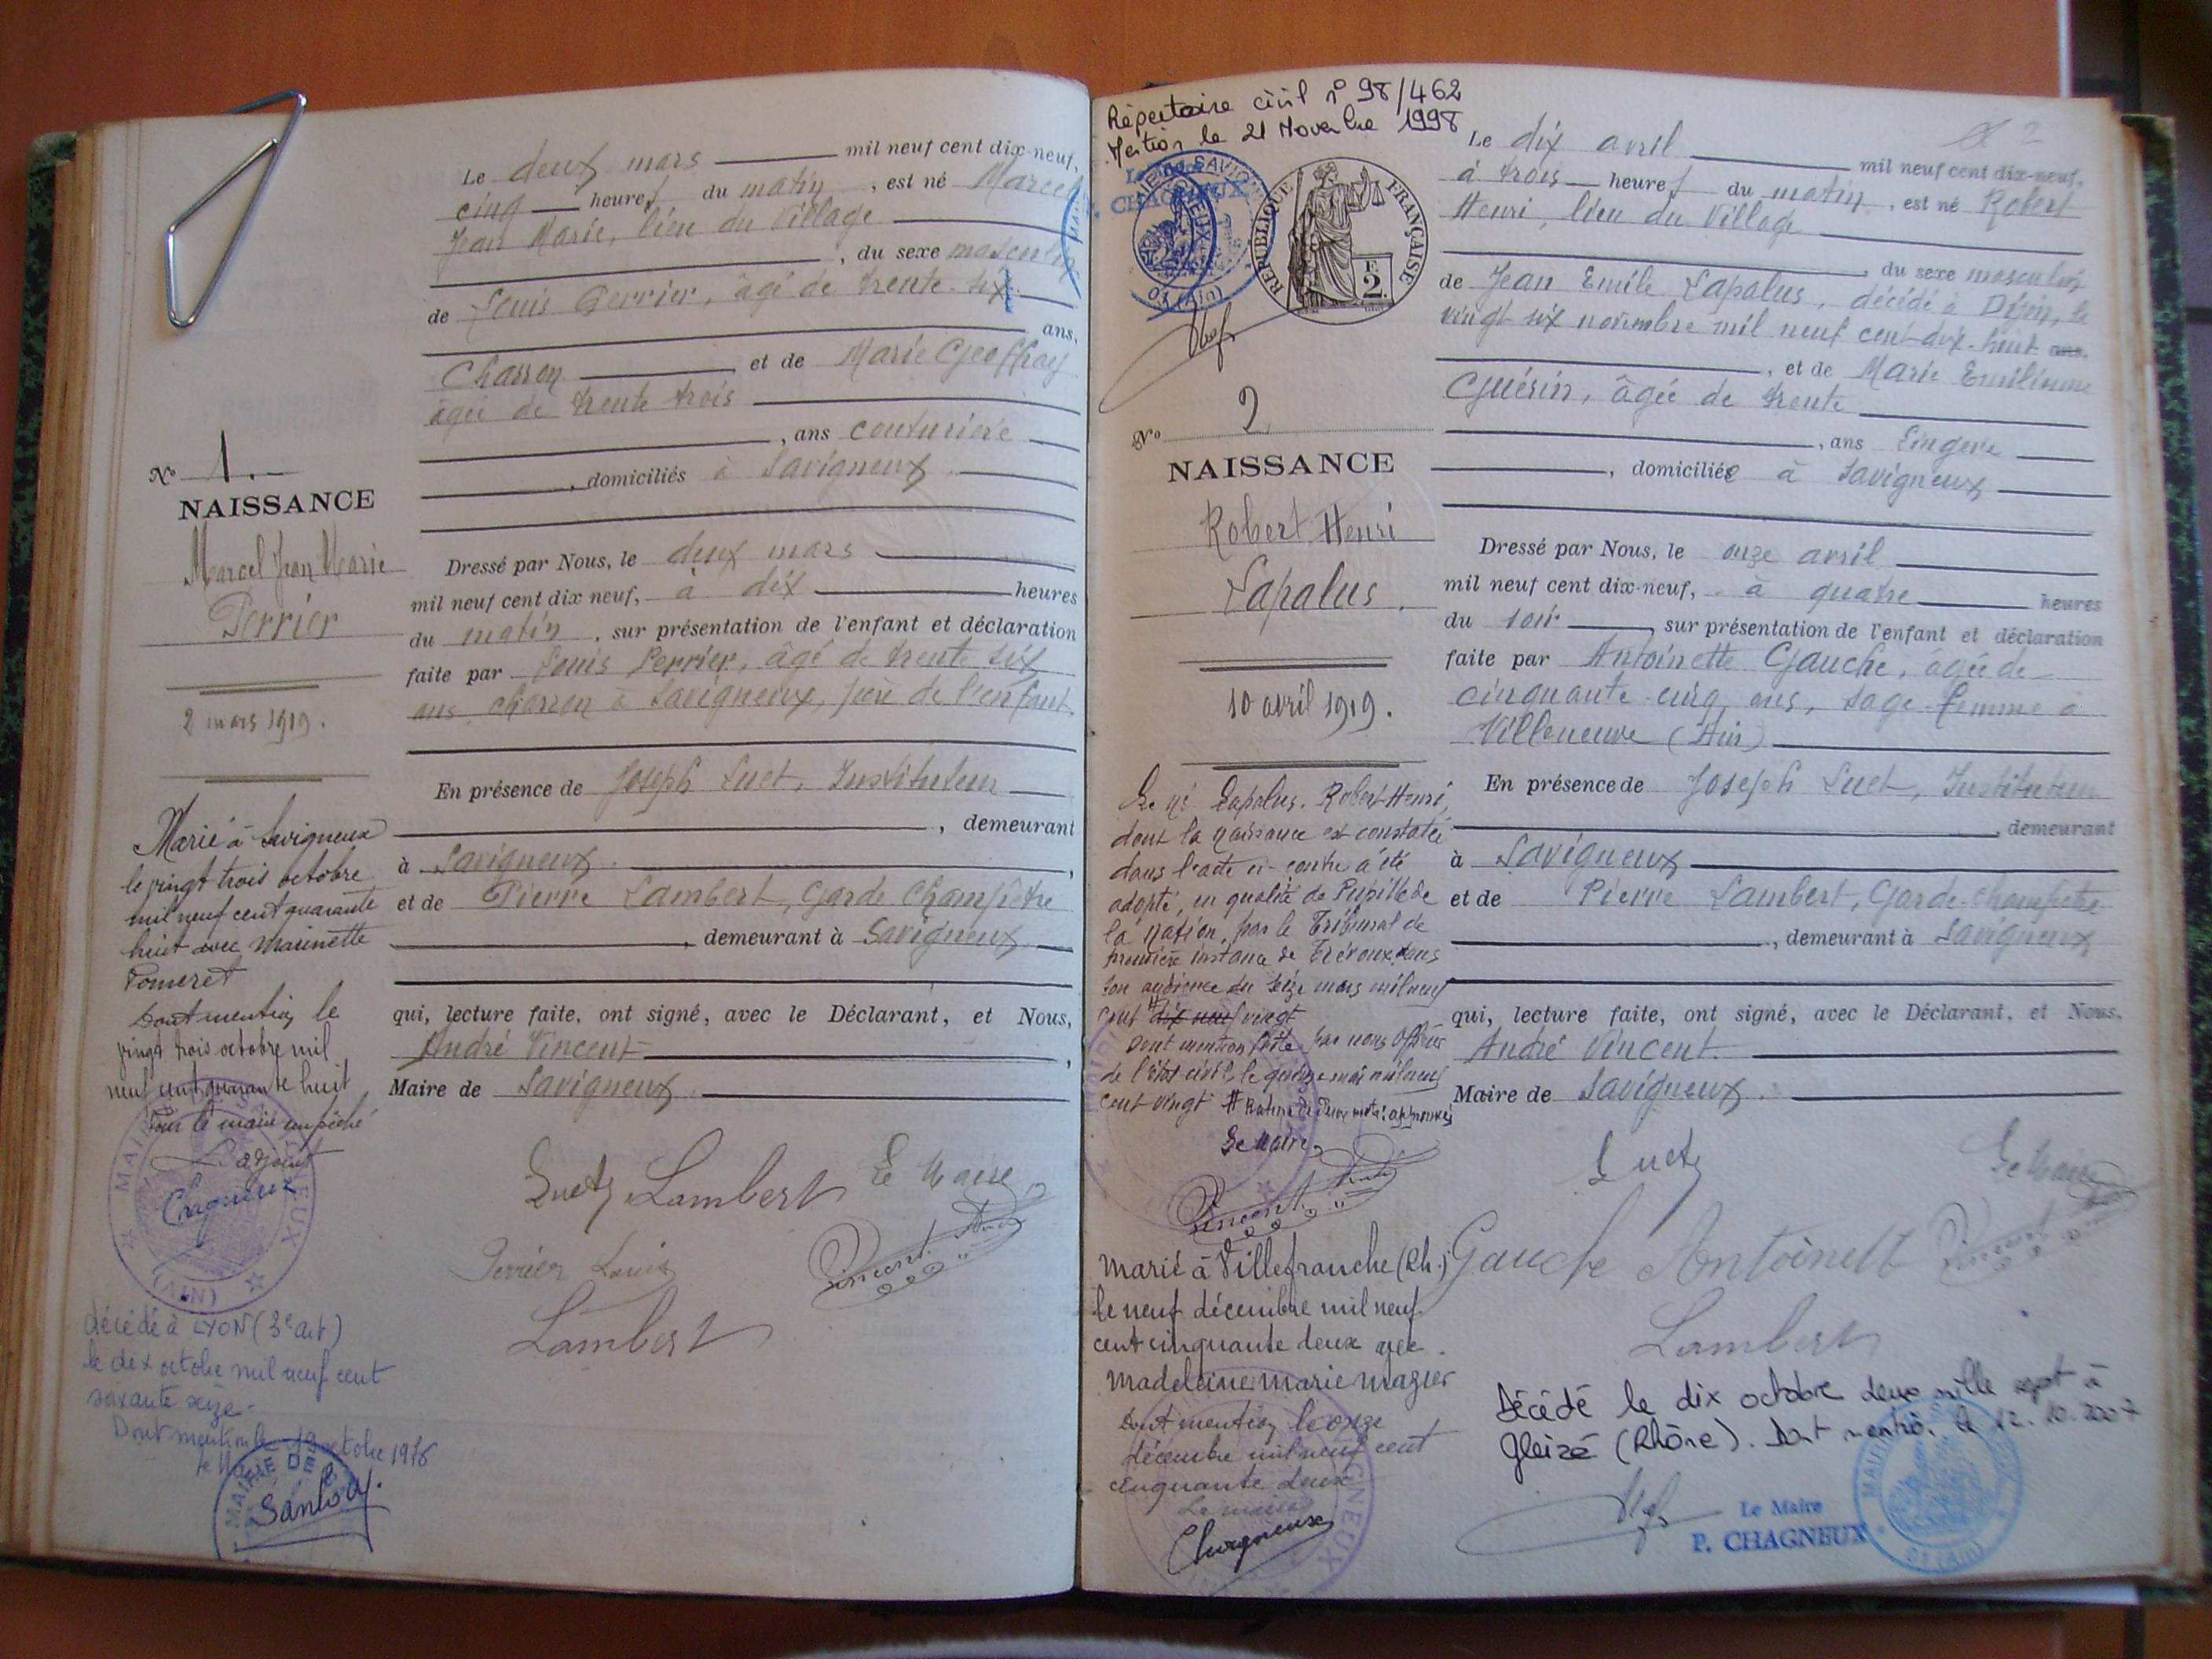 Le deux mars mil neuf cent dix-neuf,
cinq heures du matin, est né Marcel
Jean Marie, lieu du Village
, du sexe masculin
de Louis Perrier, âgé de trente-six
ans,
Charron et de Marie Geoffray
âgée de trente trois
, ans couturière
, domiciliés à Savigneux
Nº 1.
NAISSANCE
Marcel Jean Marie
Perrier
2 mars 1919.
Dressé par Nous, le deux mars
mil neuf cent dix neuf, à dix heures
du matin, sur présentation de l'enfant et déclaration
faite par Louis Perrier, âgé de trente six
ans, charron à Savigneux, père de l'enfant.
En présence de Joseph Luet, Instituteur
, demeurant
à Savigneux,
et de Pierre Lambert, Garde Champêtre
, demeurant à Savigneux
qui, lecture faite, ont signé, avec le Déclarant, et Nous,
André Vincent,
Maire de Savigneux
Luet Lambert Le Maire
Perrier Louis Vincent André
Lambert
Marié à Savigneux
le vingt trois octobre
mil neuf cent quarante
huit avec Marinette
Pomeret
Dont mention le
vingt trois octobre mil
neuf cent quarante huit
Pour le maire empêché
L'adjoint
Chagneux
décédé à LYON (3e art)
le dix octobre mil neuf cent
soixante seize.
Dont mention le 19 octobre 1976
MAIRIE DE
Répertoire civil nº 98/462
Mention le 21 Novembre 1998
P. CHAGNEUX
01 (Ain)
RÉPUBLIQUE FRANÇAISE
F
2
2
Le dix avril mil neuf cent dix-neuf,
à trois heures du matin, est né Robert
Henri, lieu du Village
, du sexe masculin
de Jean Emile Lapalus, décédé à Dijon, le
vingt six novembre mil neuf cent dix-huit ans,
, et de Marie Emilienne
Guérin, âgée de trente
, ans Lingère
, domiciliée à Savigneux
Nº 2
NAISSANCE
Robert Henri
Lapalus.
10 avril 1919.
Dressé par Nous, le onze avril
mil neuf cent dix-neuf, à quatre heures
du soir, sur présentation de l'enfant et déclaration
faite par Antoinette Gauche, âgée de
cinquante cinq ans, sage femme à
Villeneuve (Ain)
En présence de Joseph Luet, Instituteur
, demeurant
à Savigneux
et de Pierre Lambert, Garde-champêtre
, demeurant à Savigneux
qui, lecture faite, ont signé, avec le Déclarant, et Nous,
André Vincent.
Maire de Savigneux
Luet Le Maire
Gauche Antoinett Vincent
Lambert
Le né Lapalus, Robert Henri,
dont la naissance est constatée
dans l'acte ci-contre a été
adopté, en qualité de Pupille de
la nation, par le Tribunal de
première instance de Trévoux dans
son audience du seize mars mil neuf
cent dix neuf vingt
Dont mention faite par nous Officier
de l'état civil, le quinze mai mil neuf
cent vingt # Rature de deux mots approuvés
Le Maire,
Vincent André
Marié à Villefranche (Rh.)
le neuf décembre mil neuf
cent cinquante deux avec
Madeleine Marie Magier
Dont mention le onze
décembre mil neuf cent
cinquante deux
Le maire
Chagneux
Décédé le dix octobre deux mille sept à
Gleizé (Rhône). Dont mention le 12.10.2007
Le Maire
P. CHAGNEUX
01 (Ain)